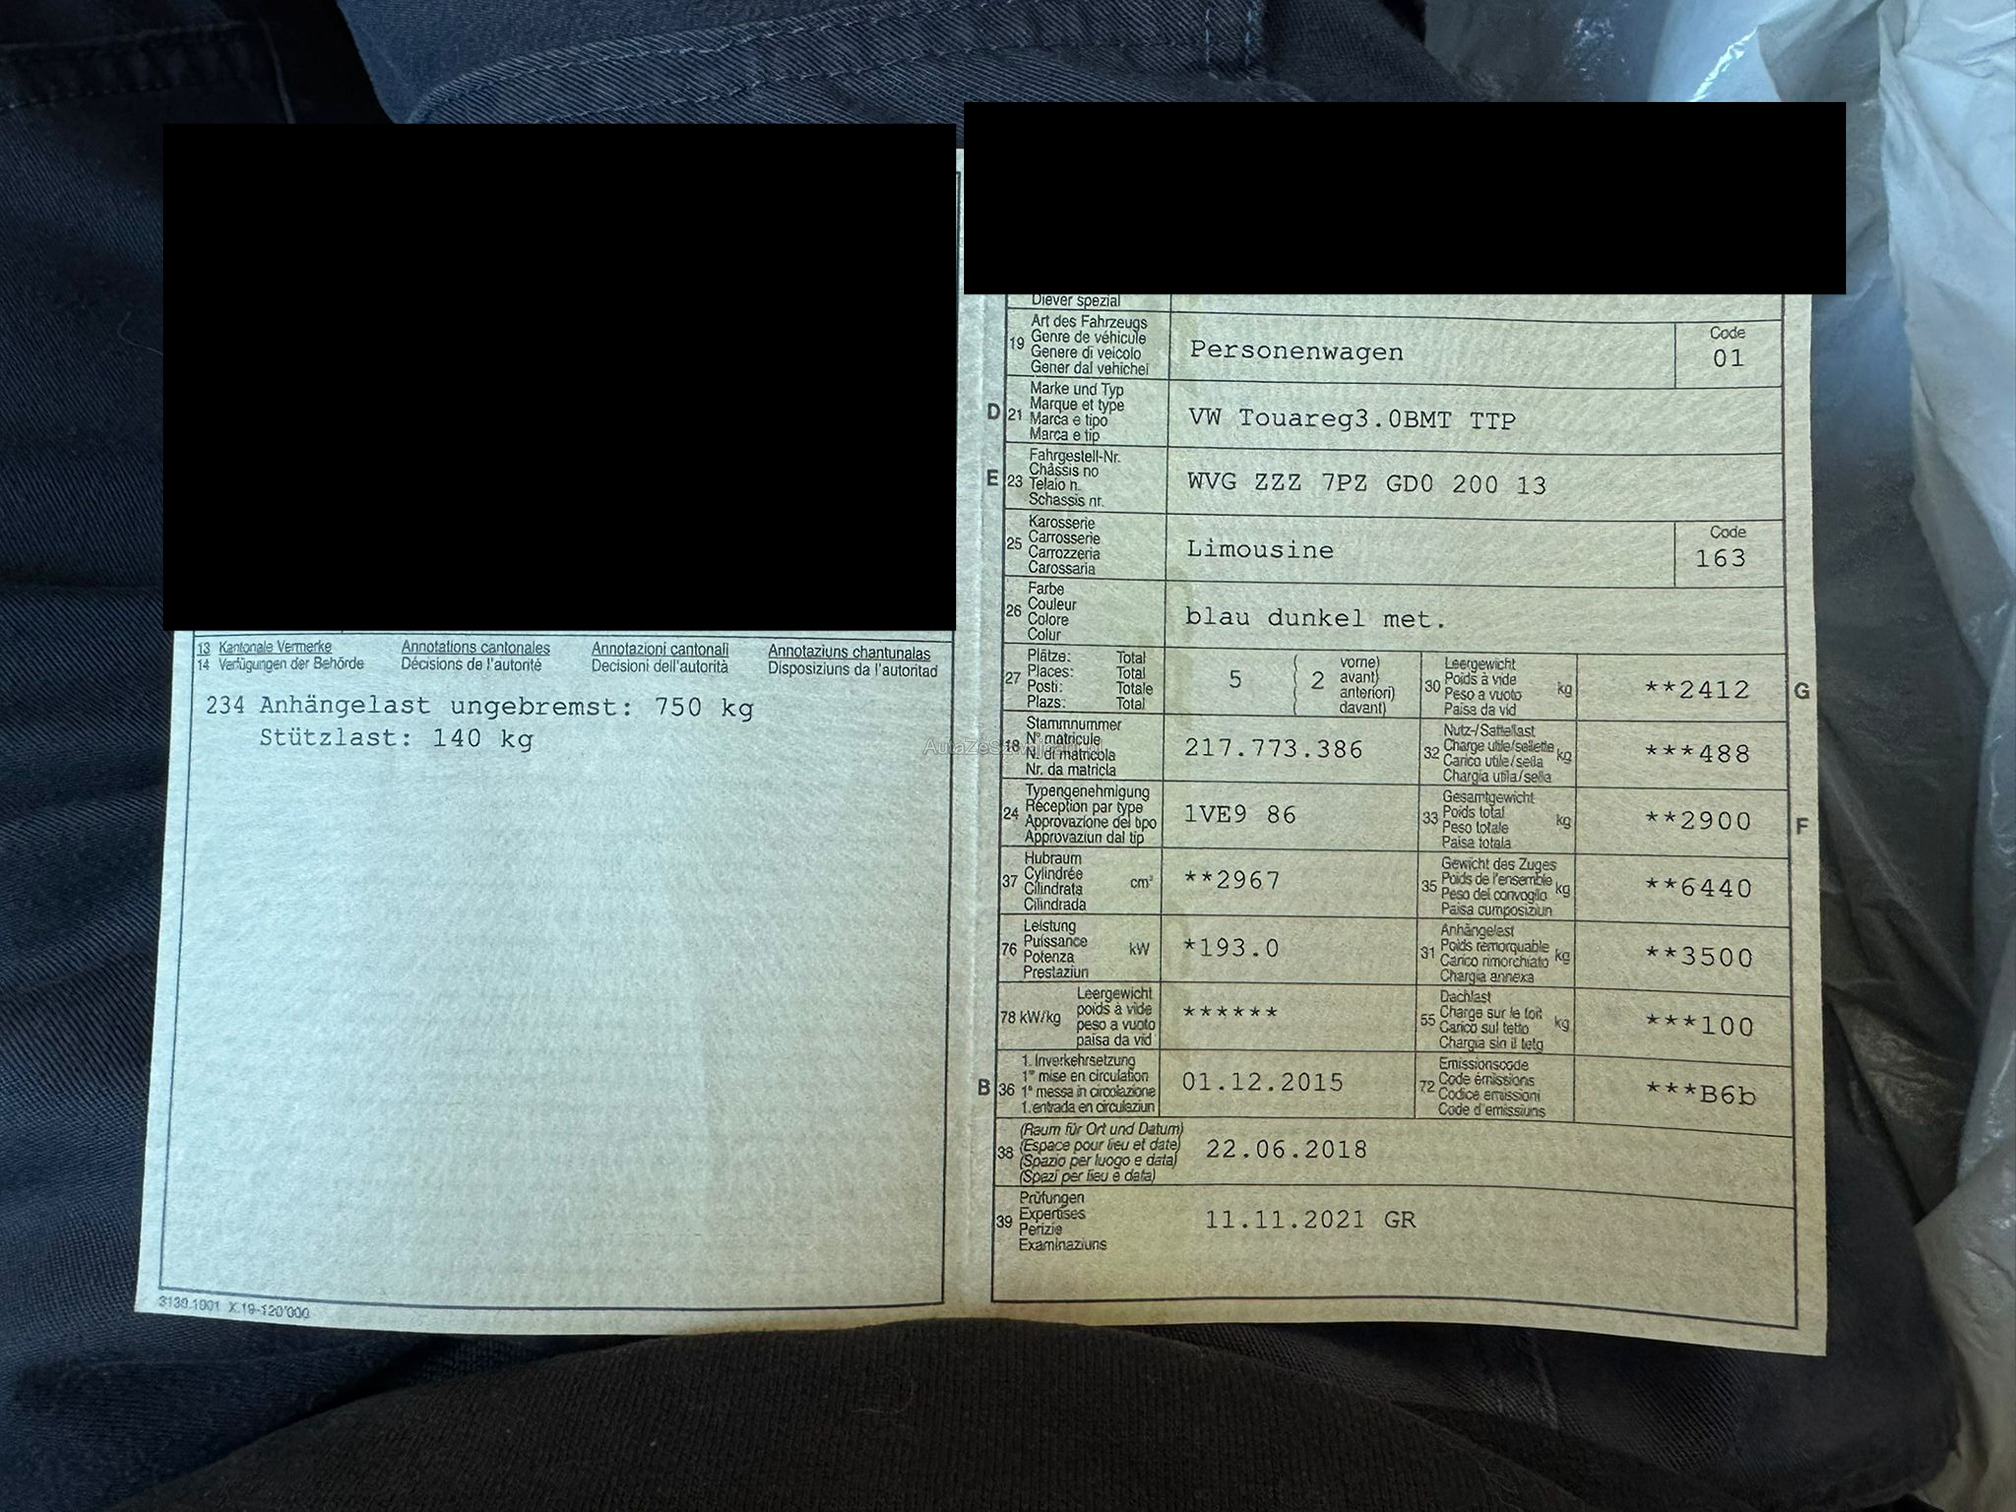 13 Kantonale Vermerke Annotations cantonales Annotazioni cantonali Annotaziuns chantunalas
14 Verfügungen der Behörde Décisions de l'autorité Decisioni dell'autorità Disposiziuns da l'autoritad
234 Anhängelast ungebremst: 750 kg
Stützlast: 140 kg
3130.1001 X.19-120'000
Diever spezial
Art des Fahrzeugs
19 Genre de véhicule
Genere di veicolo
Gener dal vehichel
Personenwagen
Code
01
Marke und Typ
D 21 Marque et type
Marca e tipo
Marca e tip
VW Touareg3.0BMT TTP
Fahrgestell-Nr.
E 23 Châssis no
Telaio n.
Schassis nr.
WVG ZZZ 7PZ GD0 200 13
Karosserie
25 Carrosserie
Carrozzeria
Carossaria
Limousine
Code
163
Farbe
26 Couleur
Colore
Colur
blau dunkel met.
Plätze: Total
27 Places: Total
Posti: Totale
Plazs: Total
5 ( 2 vorne)
avant)
anteriori)
davant)
Leergewicht
30 Poids à vide kg
Peso a vuoto
Paisa da vid
**2412 G
Stammnummer
18 N° matricule
N. di matricola
Nr. da matricla
217.773.386
Nutz-/Sattellast
32 Charge utile/sellette kg
Carico utile/sella
Chargia utila/sella
***488
Typengenehmigung
24 Réception par type
Approvazione del tipo
Approvaziun dal tip
1VE9 86
Gesamtgewicht
33 Poids total kg
Peso totale
Paisa totala
**2900 F
Hubraum
37 Cylindrée cm³
Cilindrata
Cilindrada
**2967
Gewicht des Zuges
35 Poids de l'ensemble kg
Peso del convoglio
Paisa cumposiziun
**6440
Leistung
76 Puissance kW
Potenza
Prestaziun
*193.0
Anhängelast
31 Poids remorquable kg
Carico rimorchiato
Chargia annexa
**3500
Leergewicht
78 kW/kg poids à vide
peso a vuoto
paisa da vid
******
Dachlast
55 Charge sur le toit kg
Carico sul tetto
Chargia sin il tetg
***100
1. Inverkehrsetzung
B 36 1re mise en circulation
1a messa in circolazione
1. entrada en circulaziun
01.12.2015
Emissionscode
72 Code émissions
Codice emissioni
Code d'emissiuns
***B6b
(Raum für Ort und Datum)
38 (Espace pour lieu et date)
(Spazio per luogo e data)
(Spazi per lieu e data)
22.06.2018
Prüfungen
39 Expertises
Perizie
Examinaziuns
11.11.2021 GR